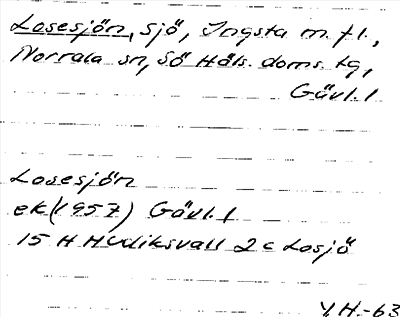 Losesjön, sjö, Ingsta m. fl.,
Norrala sn, Sö Häls. doms. tg,
Gävl. l
Losesjön
ek (1957) Gävl. l
15 H Hudiksvall 2 c Losjö
Y.H.-63